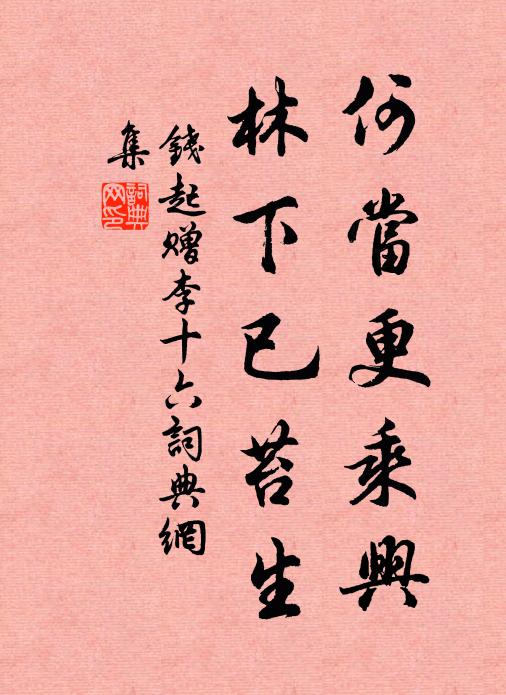 何當更乘興
林下已苔生
錢起贈李十六詞典網
集
詞典
网印